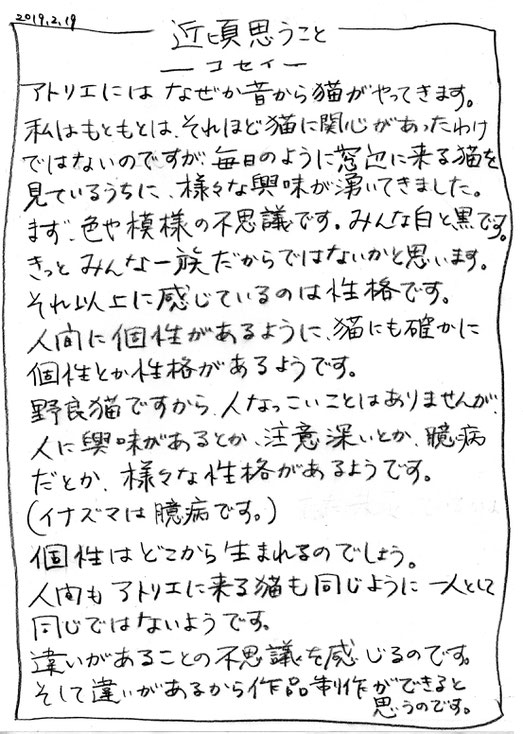 2019.2.19
近頃思うこと
コセイ
アトリエには なぜか昔から猫がやってきます。
私はもともとは、それほど猫に関心があったわけ
ではないのですが、毎日のように窓辺に来る猫を
見ているうちに、様々な興味が湧いてきました。
まず、色や模様の不思議です。みんな白と黒です。
きっと みんな一族だからではないかと思います。
それ以上に感じているのは性格です。
人間に個性があるように、猫にも確かに
個性とか性格があるようです。
野良猫ですから、人なつこいことはありませんが、
人に興味があるとか、注意深いとか、臆病
だとか、様々な性格があるようです。
(イナズマは臆病です。)
個性はどこから生まれるのでしょう。
人間も アトリエに来る猫も 同じように 一人として
同じではないようです。
違いがあることの不思議を感じるのです。
そして違いがあるから作品制作ができると
思うのです。